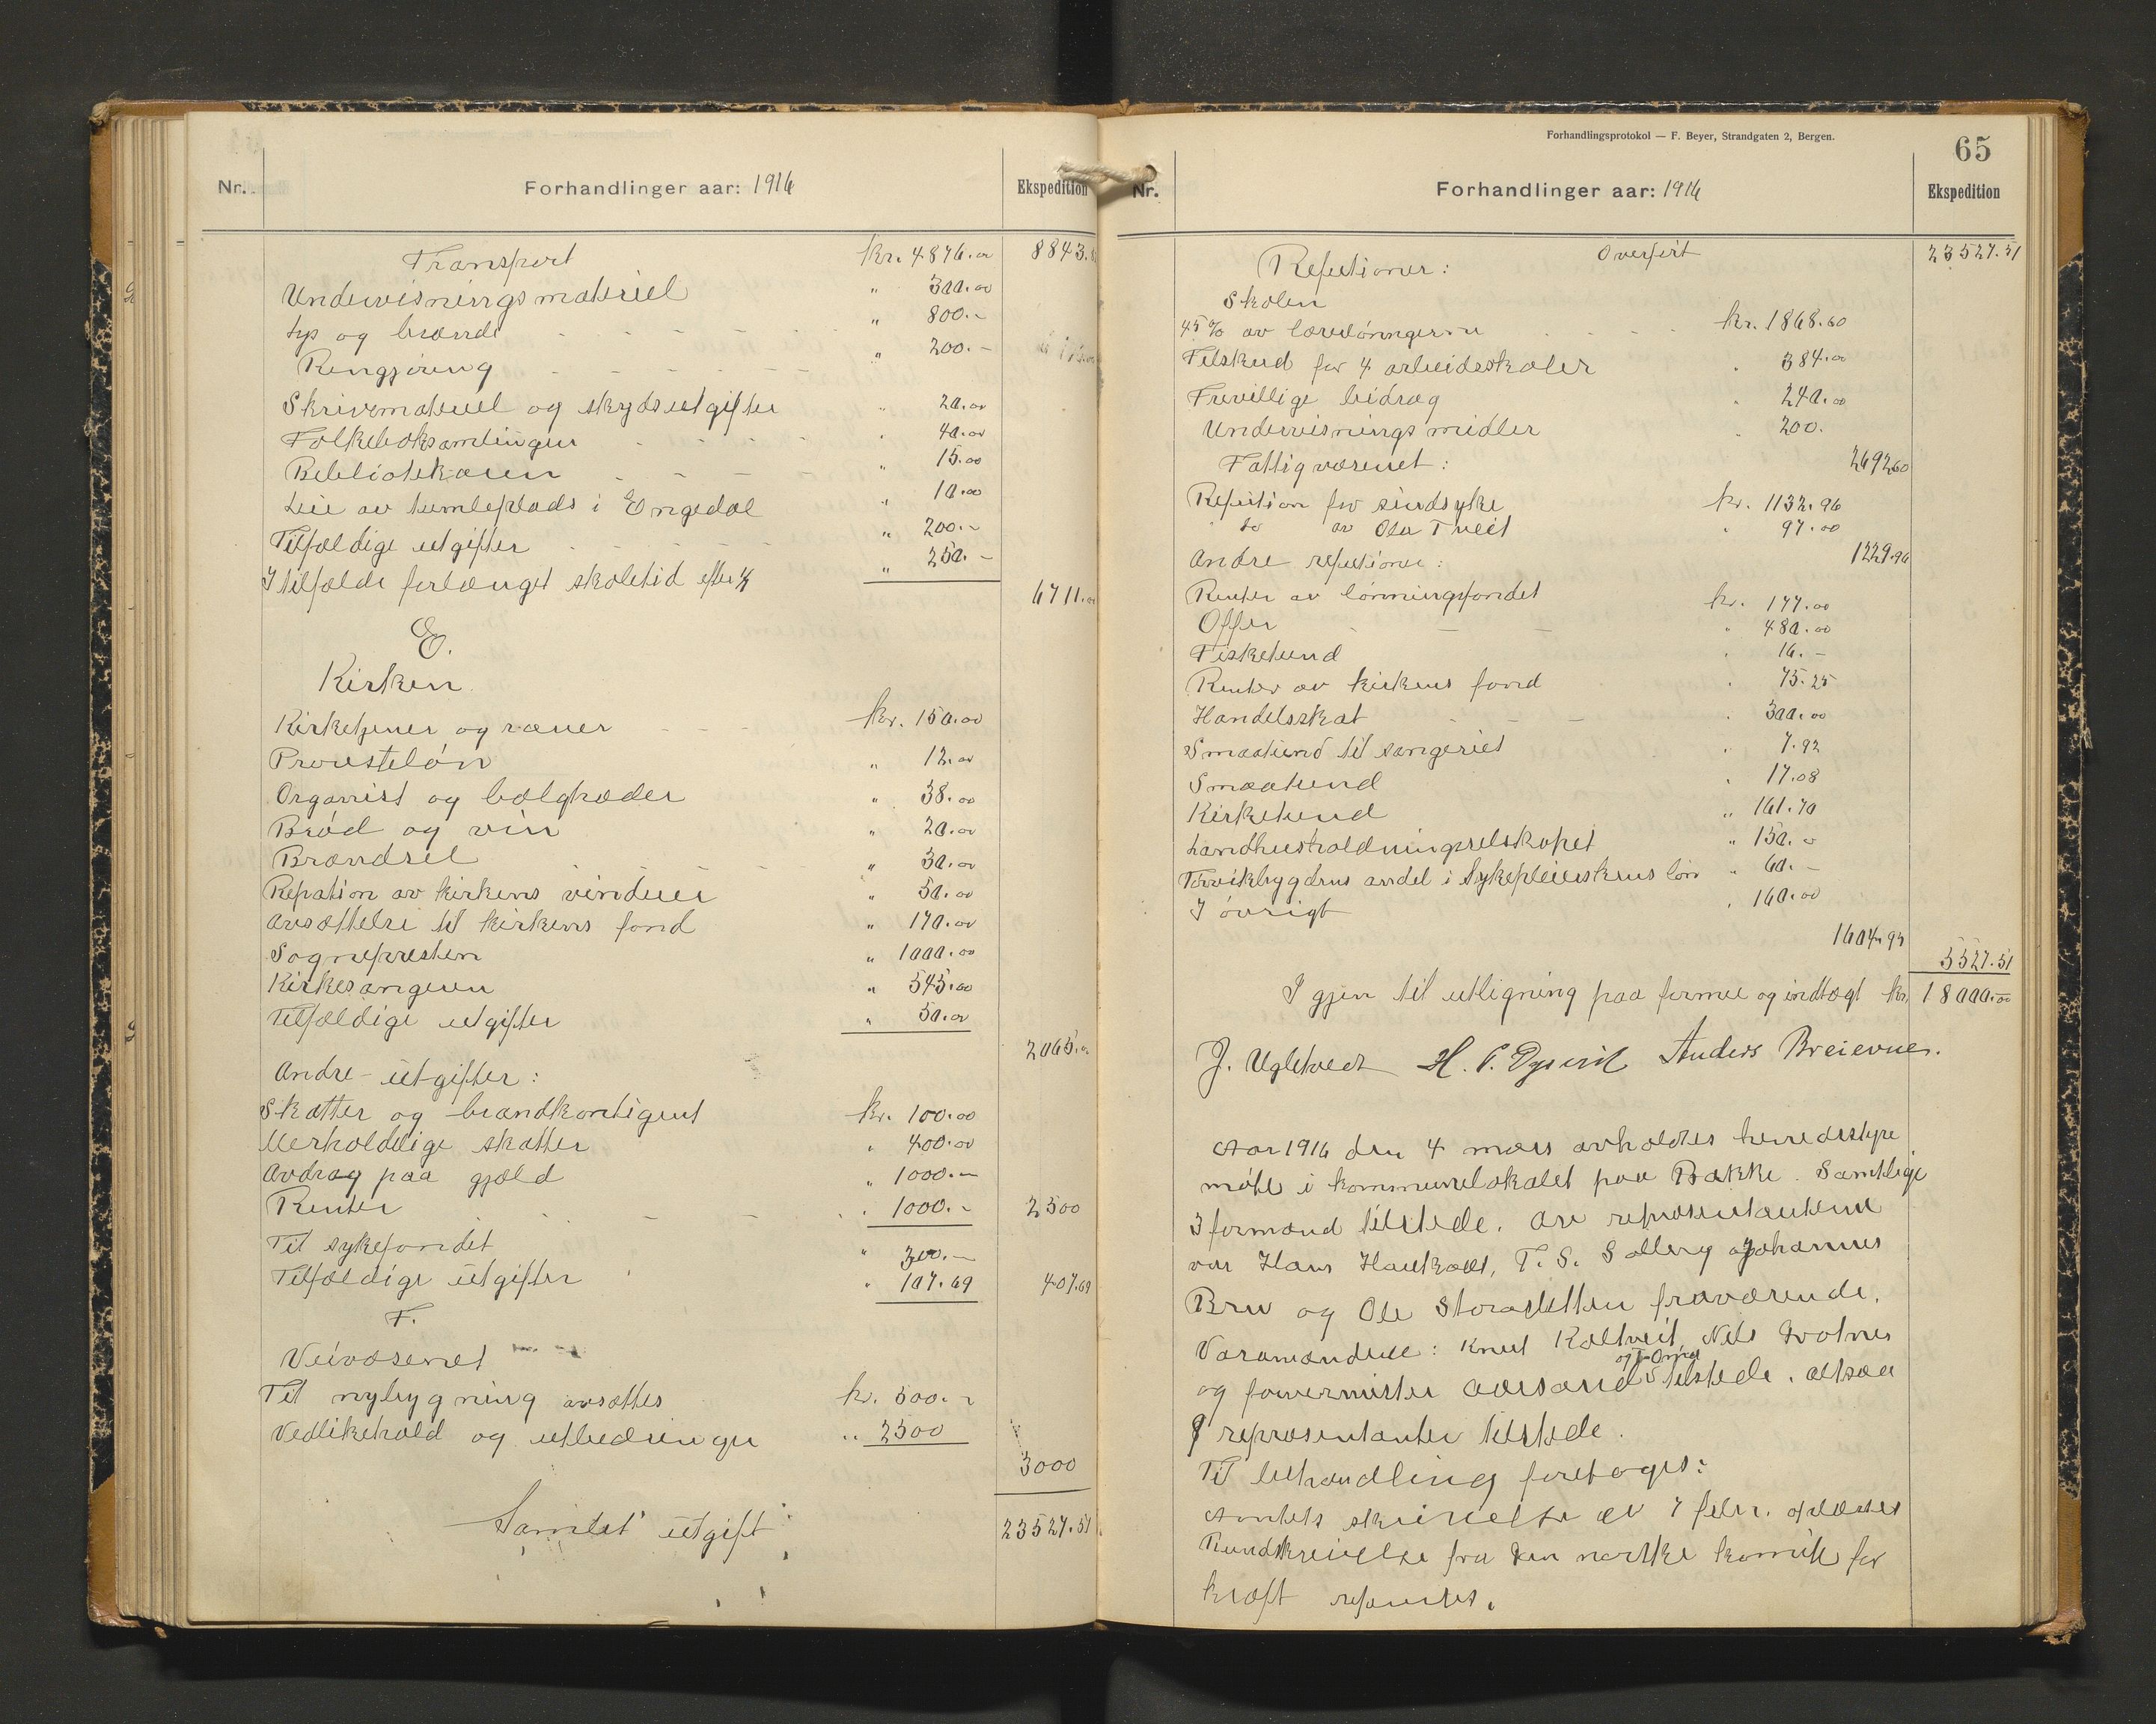 Nr.
Forhandlinger aar: 1916
Ekspedition
Transport kr. 4876.00 8843.
Undervisningsmateriel " 300.00
Lys og brænde " 800.-
Rengjøring " 200.-
Skrivemateriel og skydsutgifter " 20.00
Folkeboksamlingen " 40.00
Bibliotekaren " 15.00
Leie av tumleplads i Engedal " 10.00
Tilfældige utgifter " 200.-
I tilfælde forlænget skoletid efter " 250.-
6711.00
E.
Kirken
Kirketjener og ræner kr. 150.00
Prousteløn " 12.00
Organist og bælgtræder " 38.00
Brød og vin " 20.00
Brændsel " 30.00
Repration av kirkens vinduer " 50.00
Avsættelse til kirkens fond " 170.00
Sognepresten " 1000.00
Kirkesangeren " 545.00
Tilfældige utgifter " 50.00
2065.00
Andre utgifter:
Skatter og brandkontigent kr. 100.00
Uerholdelige skatter " 400.00
Avdrag paa gjæld " 1000.-
Renter " 1000.- 2500
Til sykefondet " 300.-
Tilfældige utgifter " 107.69 407.69
F.
Veivæsenet
Til nybygning avsættes kr. 500.-
Vedlikehold og utbedringer " 2500
3000
Samlet utgift 23527.51
Forhandlingsprotokol — F. Beyer, Strandgaten 2, Bergen.
65
Nr.
Forhandlinger aar: 1916
Ekspedition
Overført 23527.51
Refutioner:
Skolen
45 % av lærerlønningerne kr. 1868.60
Tilskud for 4 arbeidsskoler " 384.00
Frivillige bidrag " 240.00
Undervisningsmidler " 200.
2692.60
Fattigvæsenet:
Refution for sindsyke kr. 1132.96
do av Ola Tveit " 97.00
1229.96
Andre refutioner:
Renter av lønningsfondet kr. 177.00
Offer " 480.00
Fisketiend " 16.-
Renter av kirkens fond " 75.25
Handelsskat " 300.00
Smaatiend til sangeriet " 7.92
Smaatiend " 17.08
Kirketiend " 161.70
Landhusholdningsselskapet " 150.-
Torvikbygdens andel i Sykepleierskens løn " 60.-
I øvrigt " 160.00
1604.95
5527.51
I gjen til utligning paa formue og indtægt kr. 18000.00
J. Ugletveit H. P. Dysvik Anders Breievne.
Aar 1916 den 4 mars avholdtes herredsstyre
møte i kommunelokalet paa Bakke. Samtlige
3 formænd tilstede. Av repræsentanterne
var Hans Haukaas, T. S. Solberg Johannes
Bru og Ole Storasletten fraværende.
Varamændene: Knut Kaltveit, Nils Tvotnes
og T. Oma
og forvermister Aarsand tilstede. altsaa
9 repræsentanter tilstede.
Til behandling foretoges:
Amtets skrivelse av 7 febr. oplæstes
Rundskrivelse fra den norske komite for
kræft refertes.